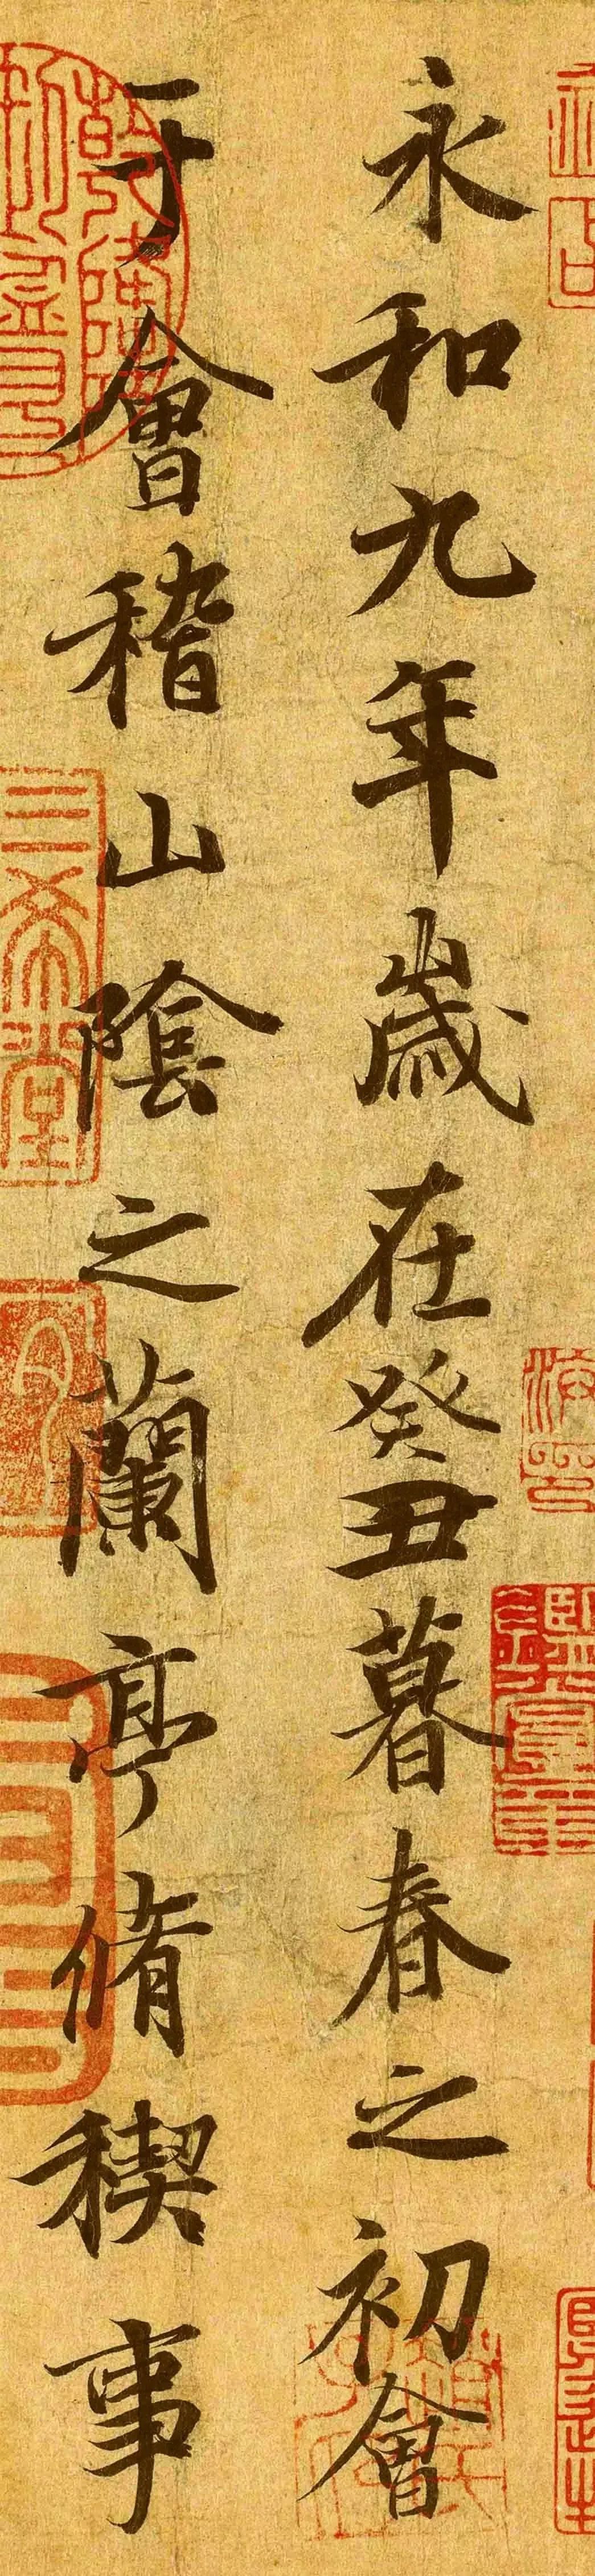 永和九年歲在癸丑暮春之初會
于會稽山陰之蘭亭脩稧事
三希堂